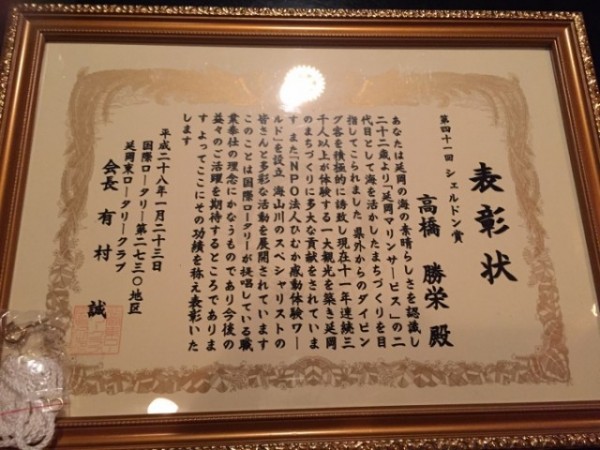 表彰状
第四十一回 シェルドン賞
高橋 勝栄 殿
あなたは延岡の海の素晴らしさを認識し
二十二歳より「延岡マリンサービス」の二
代目として海を活かしたまちづくりを目
指してこられました 県外からのダイビン
グ客を積極的に誘致し現在十一年連続三
千人以上が体験する一大観光を築き延岡
のまちづくりに多大な貢献をされていま
す また「NPO法人ひむか感動体験ワー
ルド」を設立 海山川のスペシャリストの
皆さんと多彩な活動を展開されています
このことは国際ロータリーが提唱している職
業奉仕の理念にかなうものであり今後の
益々のご活躍を期待するところでありま
す よってここにその功績を称え表彰いた
します
平成二十八年一月二十三日
国際ロータリー第二七三〇地区
延岡東ロータリークラブ
会長 有村 誠